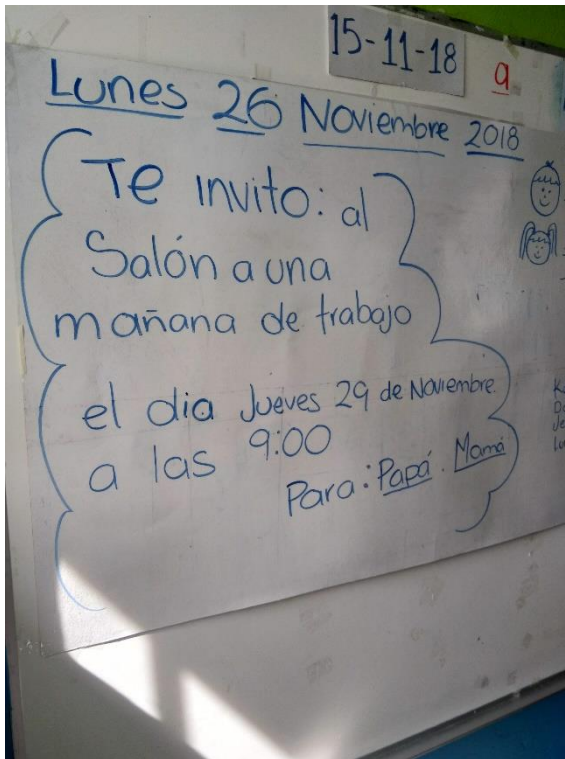 15-11-18
a
Lunes 26 Noviembre 2018
Te invito: al
Salón a una
mañana de trabajo
el dia Jueves 29 de Noviembre.
a las 9:00
Para: Papá. Mamá